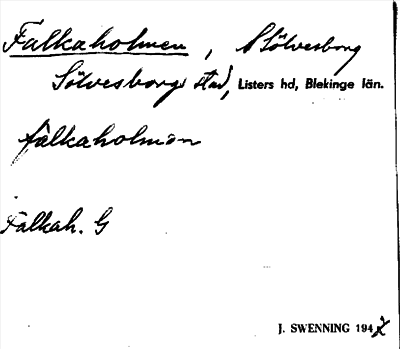 Falkaholmen, Sölvesborg
Sölvesborgs stad, Listers hd, Blekinge län.
falkaholmən
Falkah. G
J. SWENNING 1942